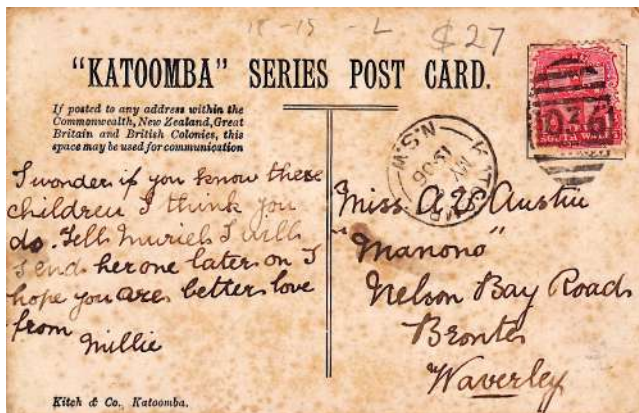 18-15 - L $27
"KATOOMBA" SERIES POST CARD.
If posted to any address within the
Commonwealth, New Zealand, Great
Britain and British Colonies, this
space may be used for communication
I wonder if you know these
children I think you
do. Tell Muriel I will
send her one later on I
hope you are better love
from
Millie
KATOOMBA
MY
06
N.S.W
SOUTH WALES
Miss A V Austin
"Manono"
Nelson Bay Road
Bronte
Waverley
Kitch & Co., Katoomba.